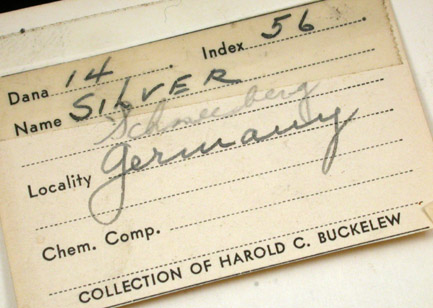 Dana 14 Index 56
Name SILVER
Schneeberg
Locality Germany
Chem. Comp.
COLLECTION OF HAROLD C. BUCKELEW